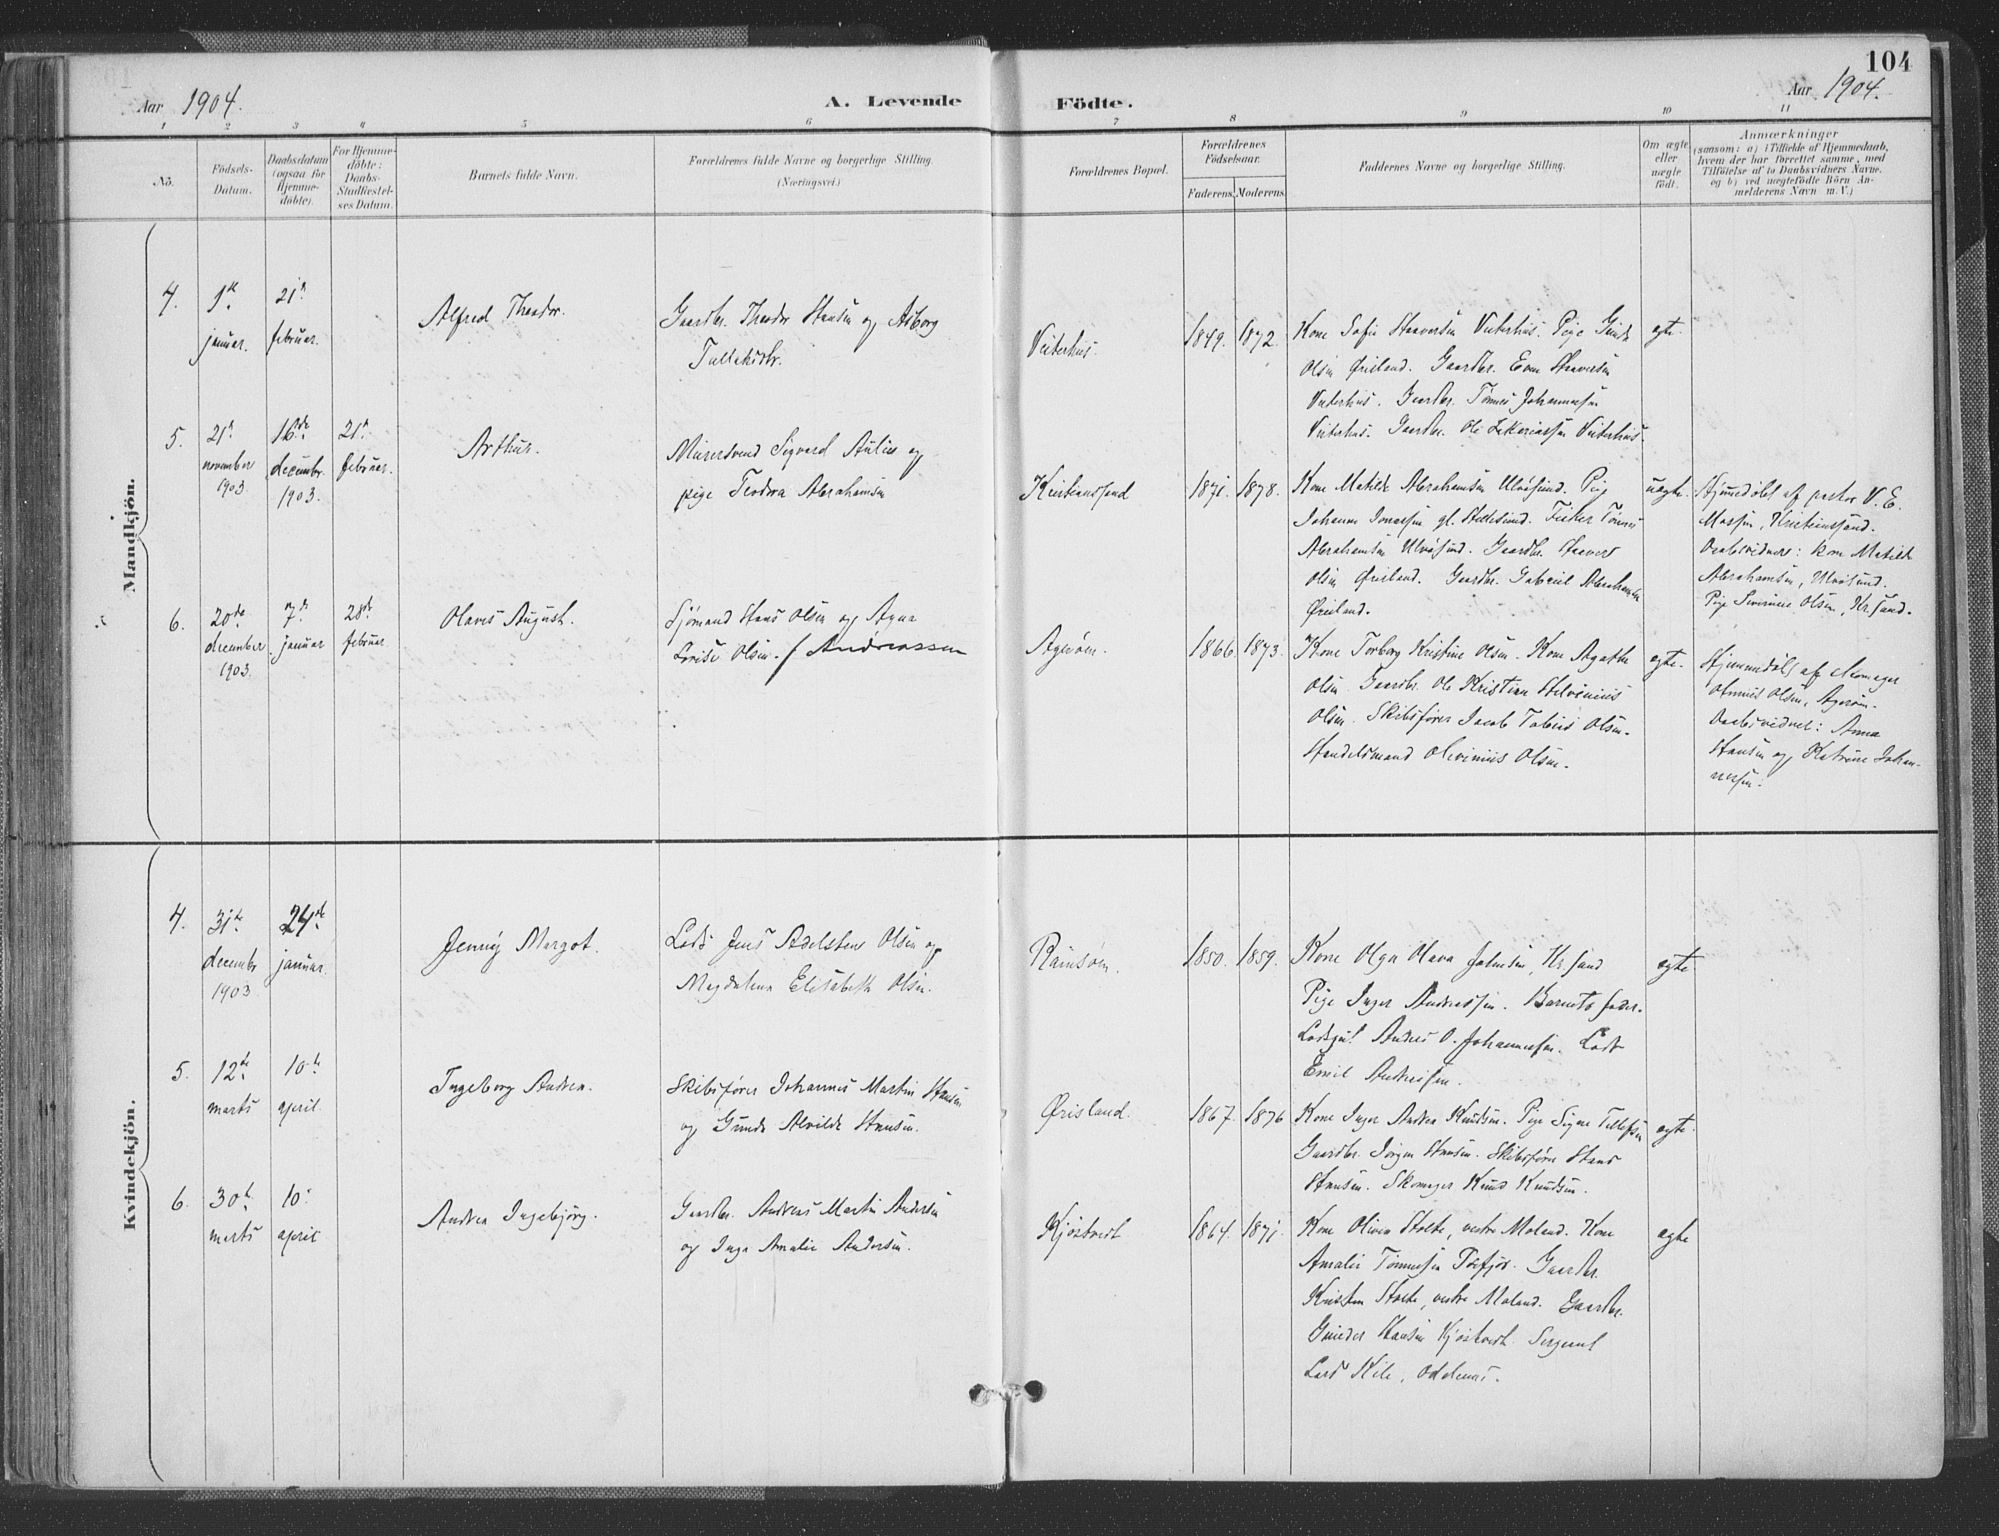 104
Aar 1904.
A. Levende Födte.
Aar 1904.
1 2 3 4 5 6 7 8 9 10 11
No.
Födsels-Datum.
Daabsdatum (ogsaa for Hjemme-döbte).
For Hjemme-döbte: Daabs-Stadfæstel-ses Datum.
Barnets fulde Navn.
Forældrenes fulde Navne og borgerlige Stilling. (Næringsvei.)
Forældrenes Bopæl.
Forældrenes Födselsaar.
Faderens Moderens
Faddernes Navne og borgerlige Stilling.
Om ægte eller uægte födt.
Anmærkninger
(saasom: a) i Tilfælde af Hjemmedaab,
hvem der har forrettet samme, med
Tilföielse af to Daabsvidners Navne.
og b) ved uægtefödte Börn An-
melderens Navn m. V.)
Mandkjön.
4.
1ste januar.
21de februar.
Alfred Theodor.
Gaardbr. Theodor Hansen og Asborg
Tallaksdtr.
1849. 1872.
Kone Sofie Haaversen
Olsen Ørisland. Gaardbr. Even Haaversen
Gaardbr. Tønnes Johannesen
Gaardbr. Ole Zakariassen
ægte.
5.
21de november 1903
16de decembr. 1903.
21de februar.
Arthur.
Murersvend Sigvard
og
pige Teodora Abrahamsen
Kristianssand
1871. 1878.
Kone Matilde Abrahamsen Ulvøsund. Pige
Johanne Jonassen gl. Hellesund. Fisker Tønnes
Abrahamsen Ulvøsund. Gaardbr. Haaver
Olsen Ørisland. Gaardbr. Gabriel Abrahamsen
Ørisland.
uægte.
Hjemmedøbt af pastor V. E.
Kristianssand.
Daabsvidner: kone Matilde
Abrahamsen, Ulvøsund.
Pige Severine Olsen, Kr.sand.
6.
20de december 1903
7de januar
28de februar
Olavus August.
Sjømand Hans Olsen og Anna
Lovise Olsen. f Andreassen
Agerøen.
1866. 1873.
Kone Torborg Kristine Olsen. Kone Agathe
Olsen. Gaardbr. Ole Kristian
Olsen. Skibsfører Jacob Tobias Olsen.
Handelsmand Olevinius Olsen.
ægte.
Hjemmedøbt af
Olsen, Agerøen.
Daabsvidner: Anna
Hansen og Katrine Johan-
nesen.
Kvindekjön.
4.
31te decembr 1903
24de januar.
Jenny Margot.
Lods Jens Adelsten Olsen og
Magdalena Elisabeth Olsen.
Ramsøen.
1850. 1859.
Kone Olga Olava Johnsen, Kr.sand
Pige Inger Andreassen. Barnets fader.
Andreas O. Johannessen. Lods
Emil Andreassen.
ægte
5.
12te marts
10de april.
Ingeborg Andrea.
Skibsfører Johannes Martin Hansen
og Gunda Alvilde Hansen.
Ørisland.
1867. 1876
Kone Inger Andrea Knudsen. Pige Signe Tellefsen
Gaardbr. Jørgen Hansen. Skibsfører Hans
Hansen. Skomager Knud Knudsen.
ægte.
6.
30te marts
10: april
Andrea Ingebjørg.
Gaardbr. Andreas Martin Andersen
og Inga Amalie Andersen.
Kjøstvedt
1864. 1871.
Kone Oliva Stolte, vestre Moland. Kone
Amalie Tønnesen Gaardbr.
Kristen Stolte, vestre Moland. Gaardbr.
Hansen Kjøstvedt. Sergeant
Lars Kile, Oddernes.
ægte